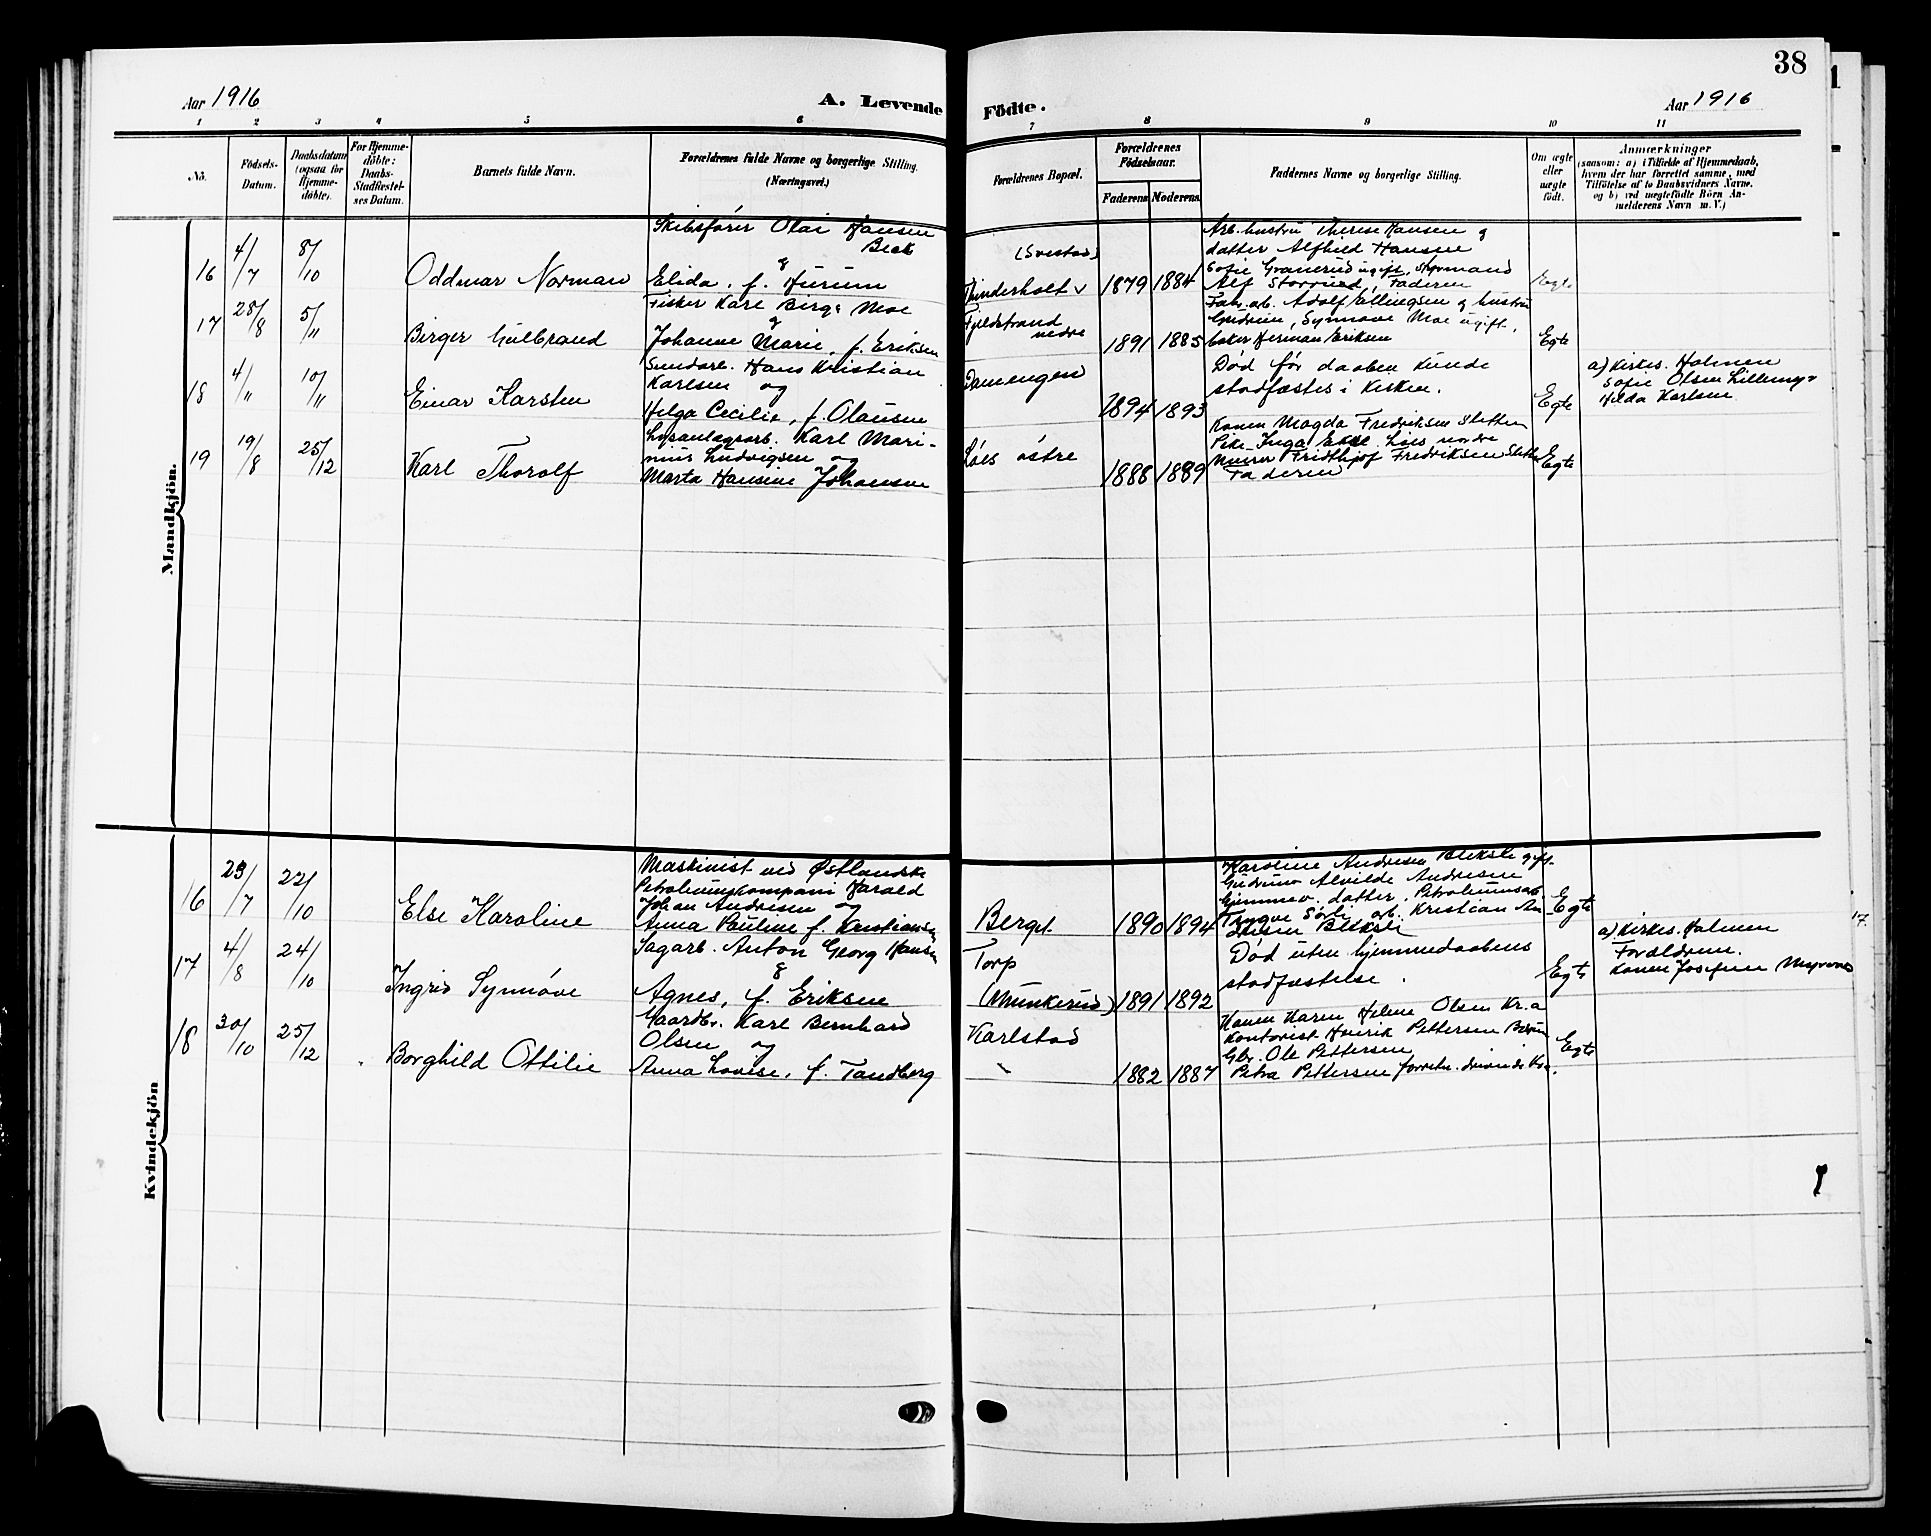 38
Aar 1916
A. Levende
Födte.
Aar 1916
1 2 3 4 5 6 7 8 9 10 11
No.
Födsels-
Datum.
Daabsdatum
(ogsaa for
Hjemme-
döbte).
For Hjemme-
döbte:
Daabs-
Stadfæstel-
ses Datum.
Barnets fulde Navn.
Forældrenes fulde Navne og borgerlige Stilling.
(Næringsvei.)
Forældrenes Bopæl.
Forældrenes
Födselsaar.
Faderens
Moderens
Faddernes Navne og borgerlige Stilling.
Om ægte
eller
uægte
födt.
Anmærkninger
(saasom: a) i Tilfælde af Hjemmedaab,
hvem der har forrettet samme, med
Tilföielse af to Daabsvidners Navne.
og b) ved uægtefödte Börn An-
melderens Navn m. V.)
Mandkjön.
16
4/7
8/10
Oddmar Norman
Skibsfører Olai Hansen
Beck
&
Elida, f. Hurum
(Svestad)
Thinderholt
1879 1884
Arb. hustru Therese Hansen &
datter Alfhild Hansen
Sofie Granerud ugift, Styrmand
Alf Storrud, Faderen
Egte
17
28/8
5/11
Birger Gulbrand
Fisker Karl Birg. Moe
&
Johanne Marie, f. Eriksen
Fjeldstrand
nedre
1891 1885
Fabr. arb. Adolf Ellingsen & hustru
Gudrun, Synnøve Moe ugift,
baker Herman Eriksen
Egte
18
4/11
10/11
Einar Karsten
Hans Kristian
Karlsen og
Helga Cecilie, f. Olausen
Damengen
1894 1893
Død før daaben kunde
stadfæstes i Kirken.
Egte
a) Kirkes. Holmen
Sofie Olsen Lillemyr
Hilda Karlsen
19
19/8
25/12
Karl Thorolf
Karl Mari-
nius Ludvigsen og
Marta Hansine Johansen
Løes østre
1888 1889
Konen Magda Fredriksen Sletten
Pike Inga Løes nordre
Murer Fridthjof Fredriksen Sletten
Faderen
Egte
Kvindekjön
16
23/7
22/10
Else Karoline
Maskinist ved Østlandske
Petroleumskompani Harald
Johan Andresen og
Anna Pauline f. Kristiansen
Berget
1890 1894
Karoline Andresen Bleksli gift.
Gudrun Alvilde Andresen
hjemmev. datter, Petroleumsarb
Trygve Sørli arb. Kristian An
dresen Bleksli
Egte
17
4/8
24/10
Ingrid Synnøve
Sagarb. Anton Georg Hansen
&
Agnes, f. Eriksen
Torp
(Munkerud)
1891 1892
Død uten hjemmedaabens
stadfæstelse.
Egte
a) Kirkes. Holmen
Forældrene.
Konen Josefine Myrvend
17.
18
30/10
25/12
Borghild Ottilie
Gaardbr. Karl Bernhard
Olsen og
Anna Lovise, f. Tandberg
Karlstad
1882 1887
Konen Karen Helene Olsen Kr.a
Kontorist Henrik Pettersen
Gbr. Ole Pettersen
Petra Pettersen forretn. drivende Kra.
Egte